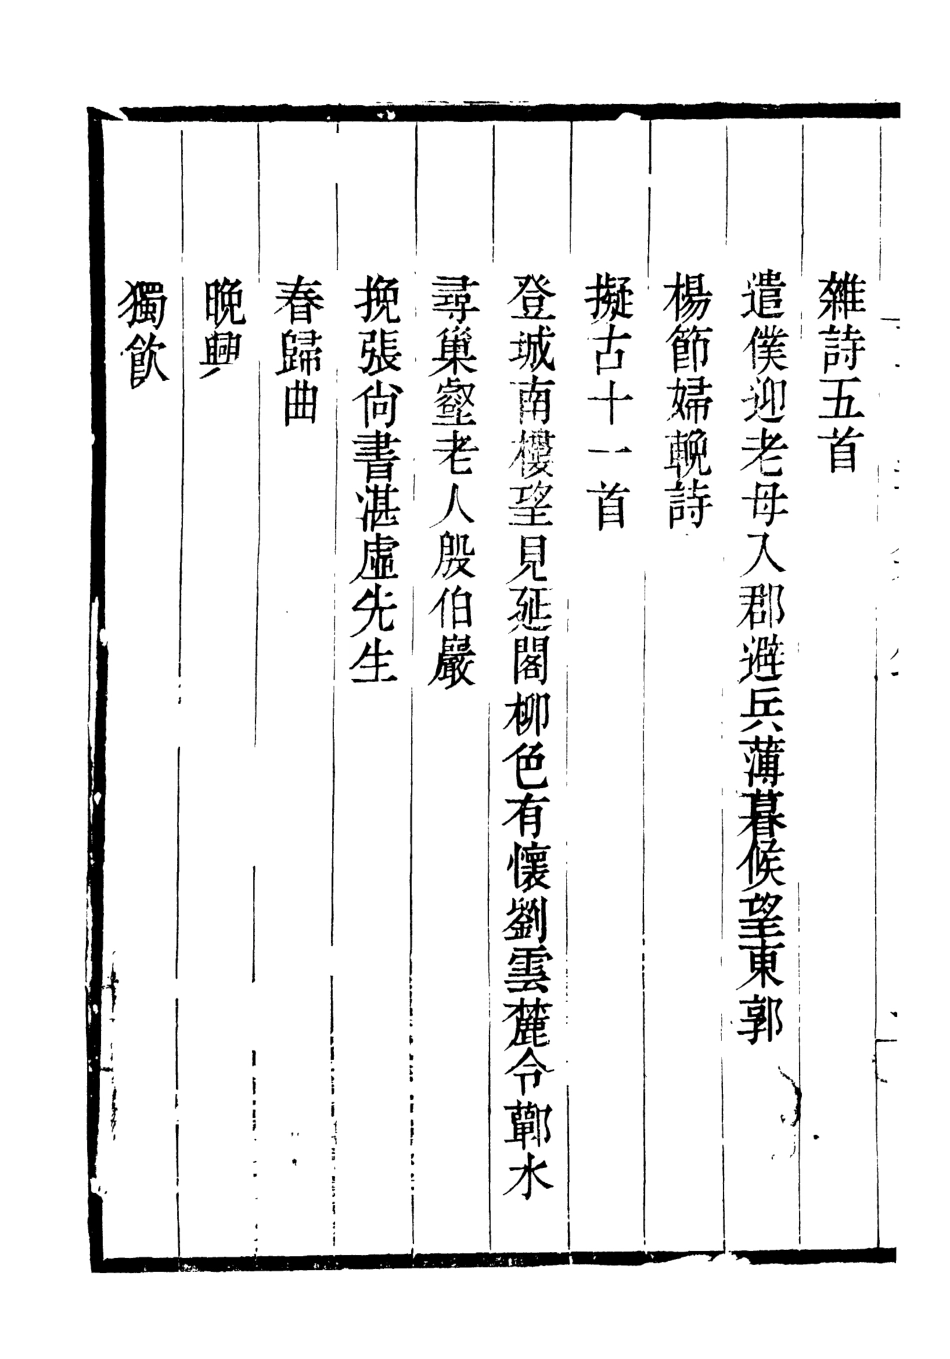 雜詩五首
遣僕迎老母入郡避兵薄暮候望東郭
楊節婦輓詩
擬古十一首
登城南樓望見延閣柳色有懷劉雲麓令鄿水
尋巢壑老人殷伯巖
挽張尙書湛虛先生
春歸曲
晚興
獨飲